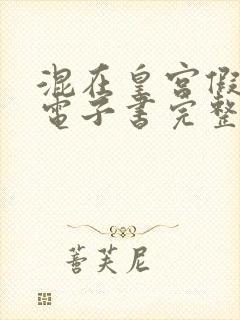 混在皇宮假
電子書完整
善芙尼